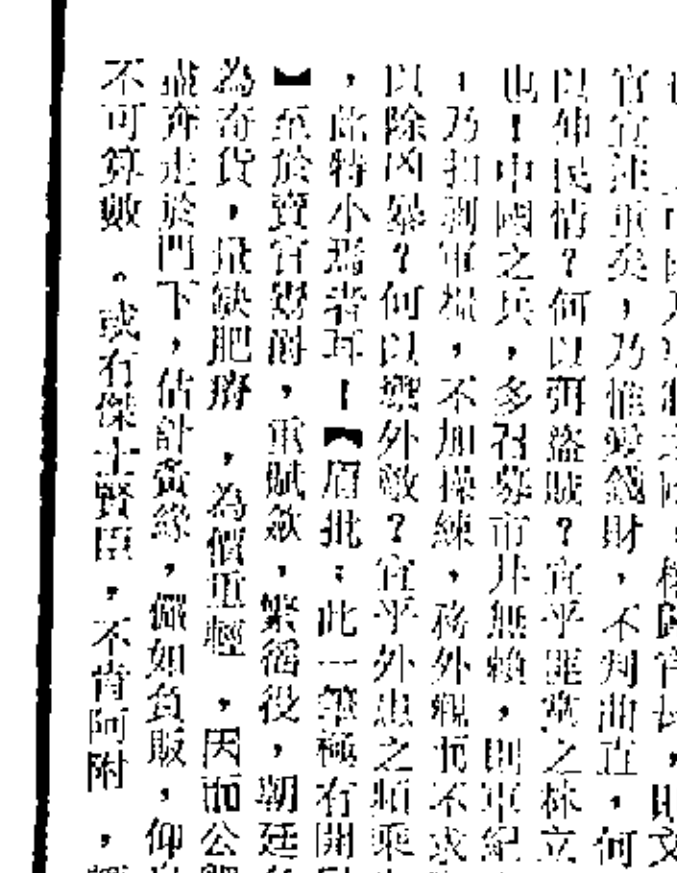 官宜注重矣，乃惟愛錢財，不判曲直，何
以伸民情？何以弭盜賊？宜乎匪黨之林立
也！中國之兵，多召募市井無賴，則軍紀
，乃扣剋軍糧，不加操練，務外觀而不求
以除凶暴？何以禦外敵？宜乎外患之頻乘
，此特小焉者耳！【眉批：此一筆極有開
】至於賣官鬻爵，重賦斂，繁徭役，朝廷
為奇貨，量缺肥瘠，為價重輕，因而公
盡奔走於門下，估計夤緣，儼如負販，仰
不可算數。或有傑士賢臣，不肯阿附，